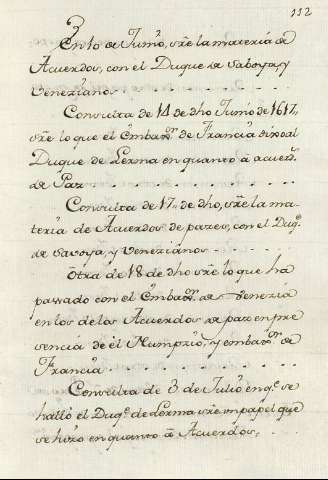 112
en 10 de Junio, sre la materia de
Acuerdos, con el Duque de Saboya, y
Venezianos
Consulta de 14 de dho Junio de 1617,
sre lo que el embaor de Francia dixo al
Duque de Lerma en quanto à acuerdo
de Paz
Consulta de 17 de dho, sre la ma-
teria de Acuerdos de pazes, con el Duqe
de Savoya, y Venezianos
otra de 18 de dho sre lo que ha
pasado con el embaor de Venezia
en los de los Acuerdos de paz en pre
sencia de el Numpzio, y embaor de
Francia
Consulta de 3 de Julio en qe se
halló el Duqe de Lerma sre un papel que
se hizo en quanto à Acuerdos,